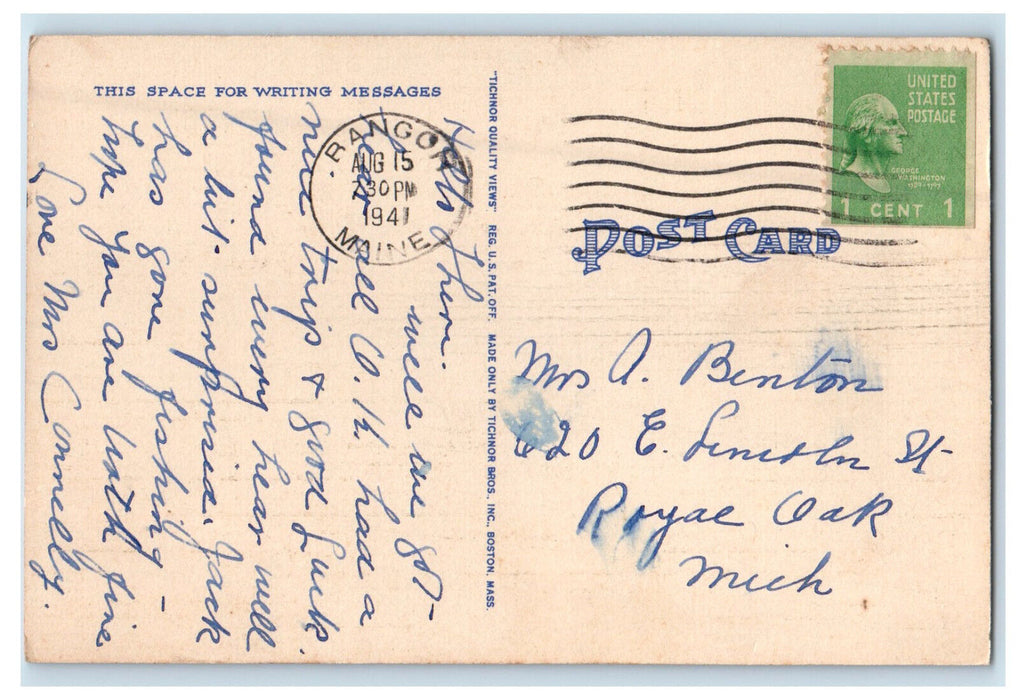 THIS SPACE FOR WRITING MESSAGES
Hello There.
well we got
all O.K. had a
nice trip & good Luck.
found every hear well
a bit surprised. Jack
has gone fishing -
hope you are with fine
Love Mrs Connelly.
BANGOR
AUG 15
7 30 PM
1941
MAINE
"TICHNOR QUALITY VIEWS" REG. U.S. PAT. OFF. MADE ONLY BY TICHNOR BROS., INC., BOSTON, MASS.
UNITED
STATES
POSTAGE
GEORGE
WASHINGTON
1789-1797
1 CENT 1
POST CARD
Mrs A. Benton
620 E. Lincoln St
Royal Oak
Mich